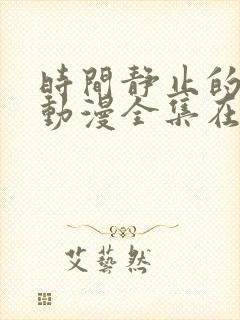 時間靜止的
動漫全集在
艾藝然